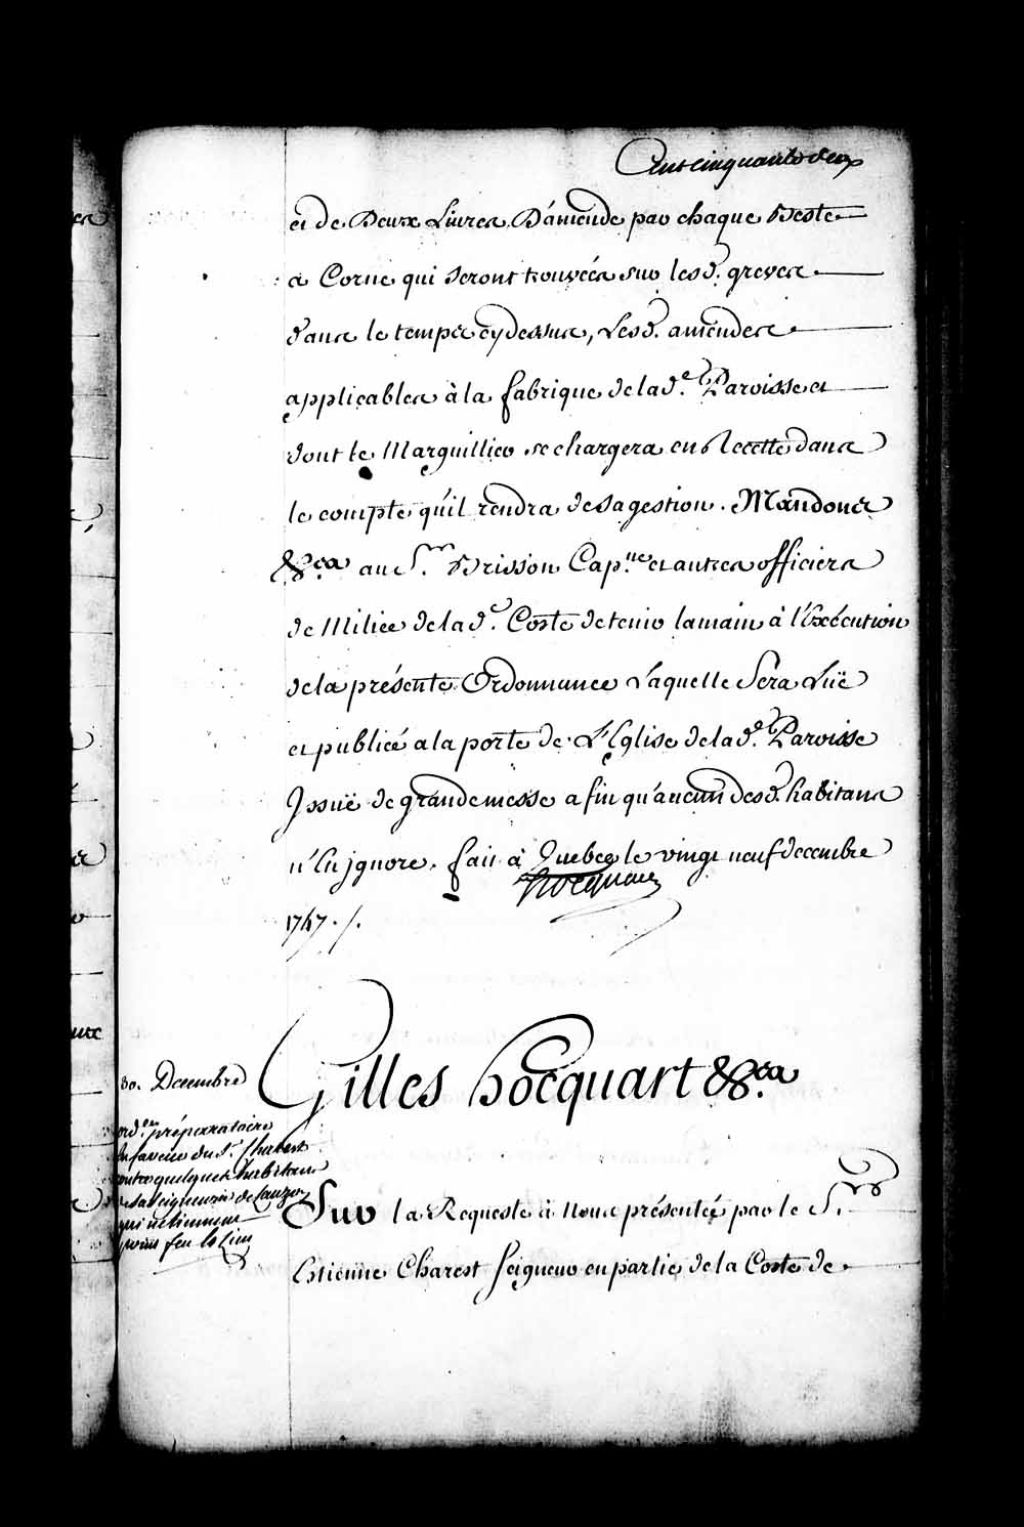 Cent cinquante deux
et de Deux Livres D'amende par chaque Beste
a Corne qui seront trouvées sur lesd. greves
dans le temps cy dessus, Lesd. amendes
applicables à la fabrique de lad.e Paroisse et
dont le Marguillier se chargera en Recette dans
le compte qu'il rendra de sa gestion. Mandons
&ca au S.r Brisson Cap.ne et autres officiers
de Milice de lad.e Coste de tenir la main à l'Exécution
de la présente Ordonnance Laquelle Sera Luë
et publiée a la porte de L'Eglise de lad.e Paroisse
Issuë de grande messe afin qu'aucun desd. habitans
n'En jgnore. fait à Quebec le vingt neuf decembre
1747./.
Hocquart
Gilles hocquart &ca
30. Decembre
ord.ce préparatoire
en faveur du S.r Charest
contre quelques habitans
de la Seigneurie de Lauzon
qui ne tiennent
point feu et Lieu
Sur la Requeste à Nous présentée par le S.r
Etienne Charest Seigneur en partie de la Coste de